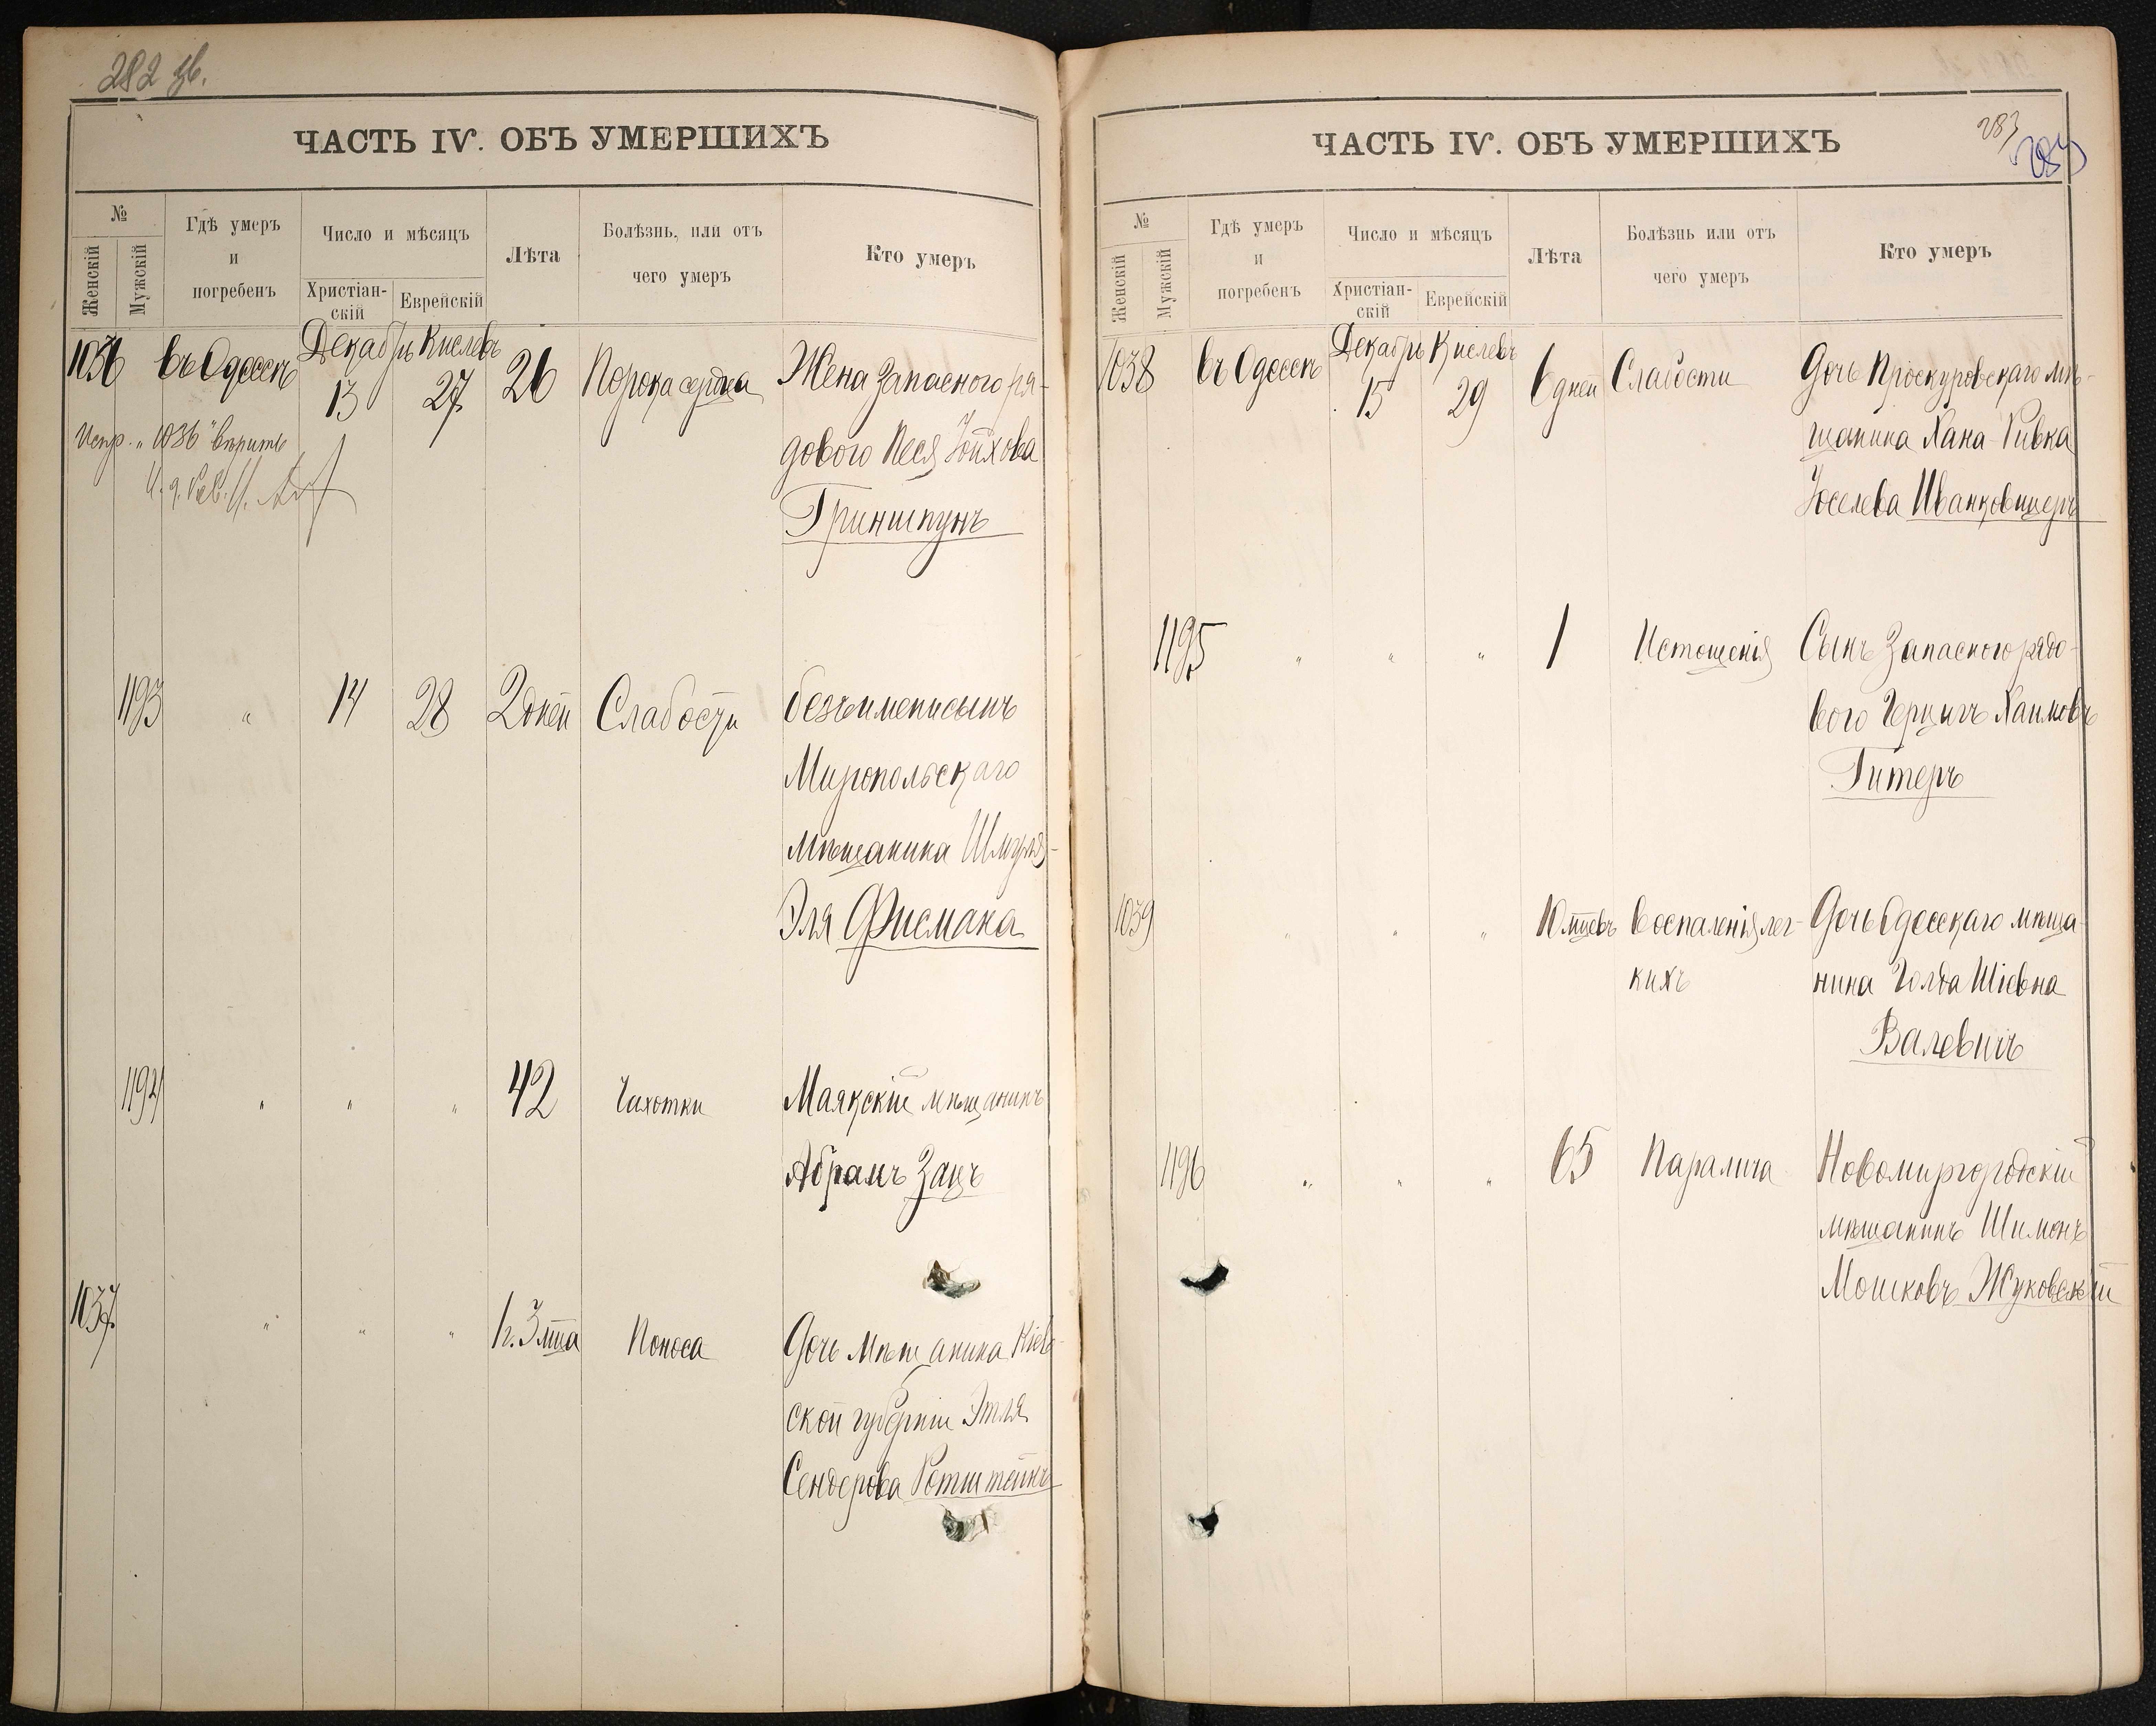 282 зв.
ЧАСТЬ IV. ОБЪ УМЕРШИХЪ
№
Женскій
Мужскій
Гдѣ умеръ
и
погребенъ
Число и мѣсяцъ
Христіан-
скій
Еврейскій
Лѣта
Болѣзнь, или отъ
чего умеръ
Кто умеръ
1036 въ Одессѣ Декабрь 13 Кислевъ 27 26 Порока сердца Жена запасного ря-
дового Песя Іойхова
Гриншпунъ
Испр. „1036" вѣрить
1193 " 14 28 2 дней Слабости безъимени сынъ
Миропольскаго
мѣщанина Шмуля-
Эля Фисмана
1194 " " " 42 Чахотки Маякскій мѣщанинъ
Абрамъ Зацъ
1037 " " " 1 г. 3 мца Поноса Дочь мѣщанина Кіев-
ской губерніи Этля
Сендерова Ротштейнъ
283
283
ЧАСТЬ IV. ОБЪ УМЕРШИХЪ
№
Женскій
Мужскій
Гдѣ умеръ
и
погребенъ
Число и мѣсяцъ
Христіан-
скій
Еврейскій
Лѣта
Болѣзнь или отъ
чего умеръ
Кто умеръ
1038 въ Одессѣ Декабрь 15 Кислевъ 29 6 дней Слабости Дочь Проскуровскаго мѣ-
щанина Хана-Ривка
Іоселева Иванковицеръ
1195 " " " 1 Истощенія Сынъ запасного рядо-
вого Герцигъ Хаимовъ
Гитеръ
1039 " " " 10 мцевъ Воспаленія лег- Дочь Одесскаго мѣща-
кихъ нина Голда Шіевна
Валевичъ
1196 " " " 65 Паралича Новомиргородскій
мѣщанинъ Шимонъ
Мошковъ Жуковскій